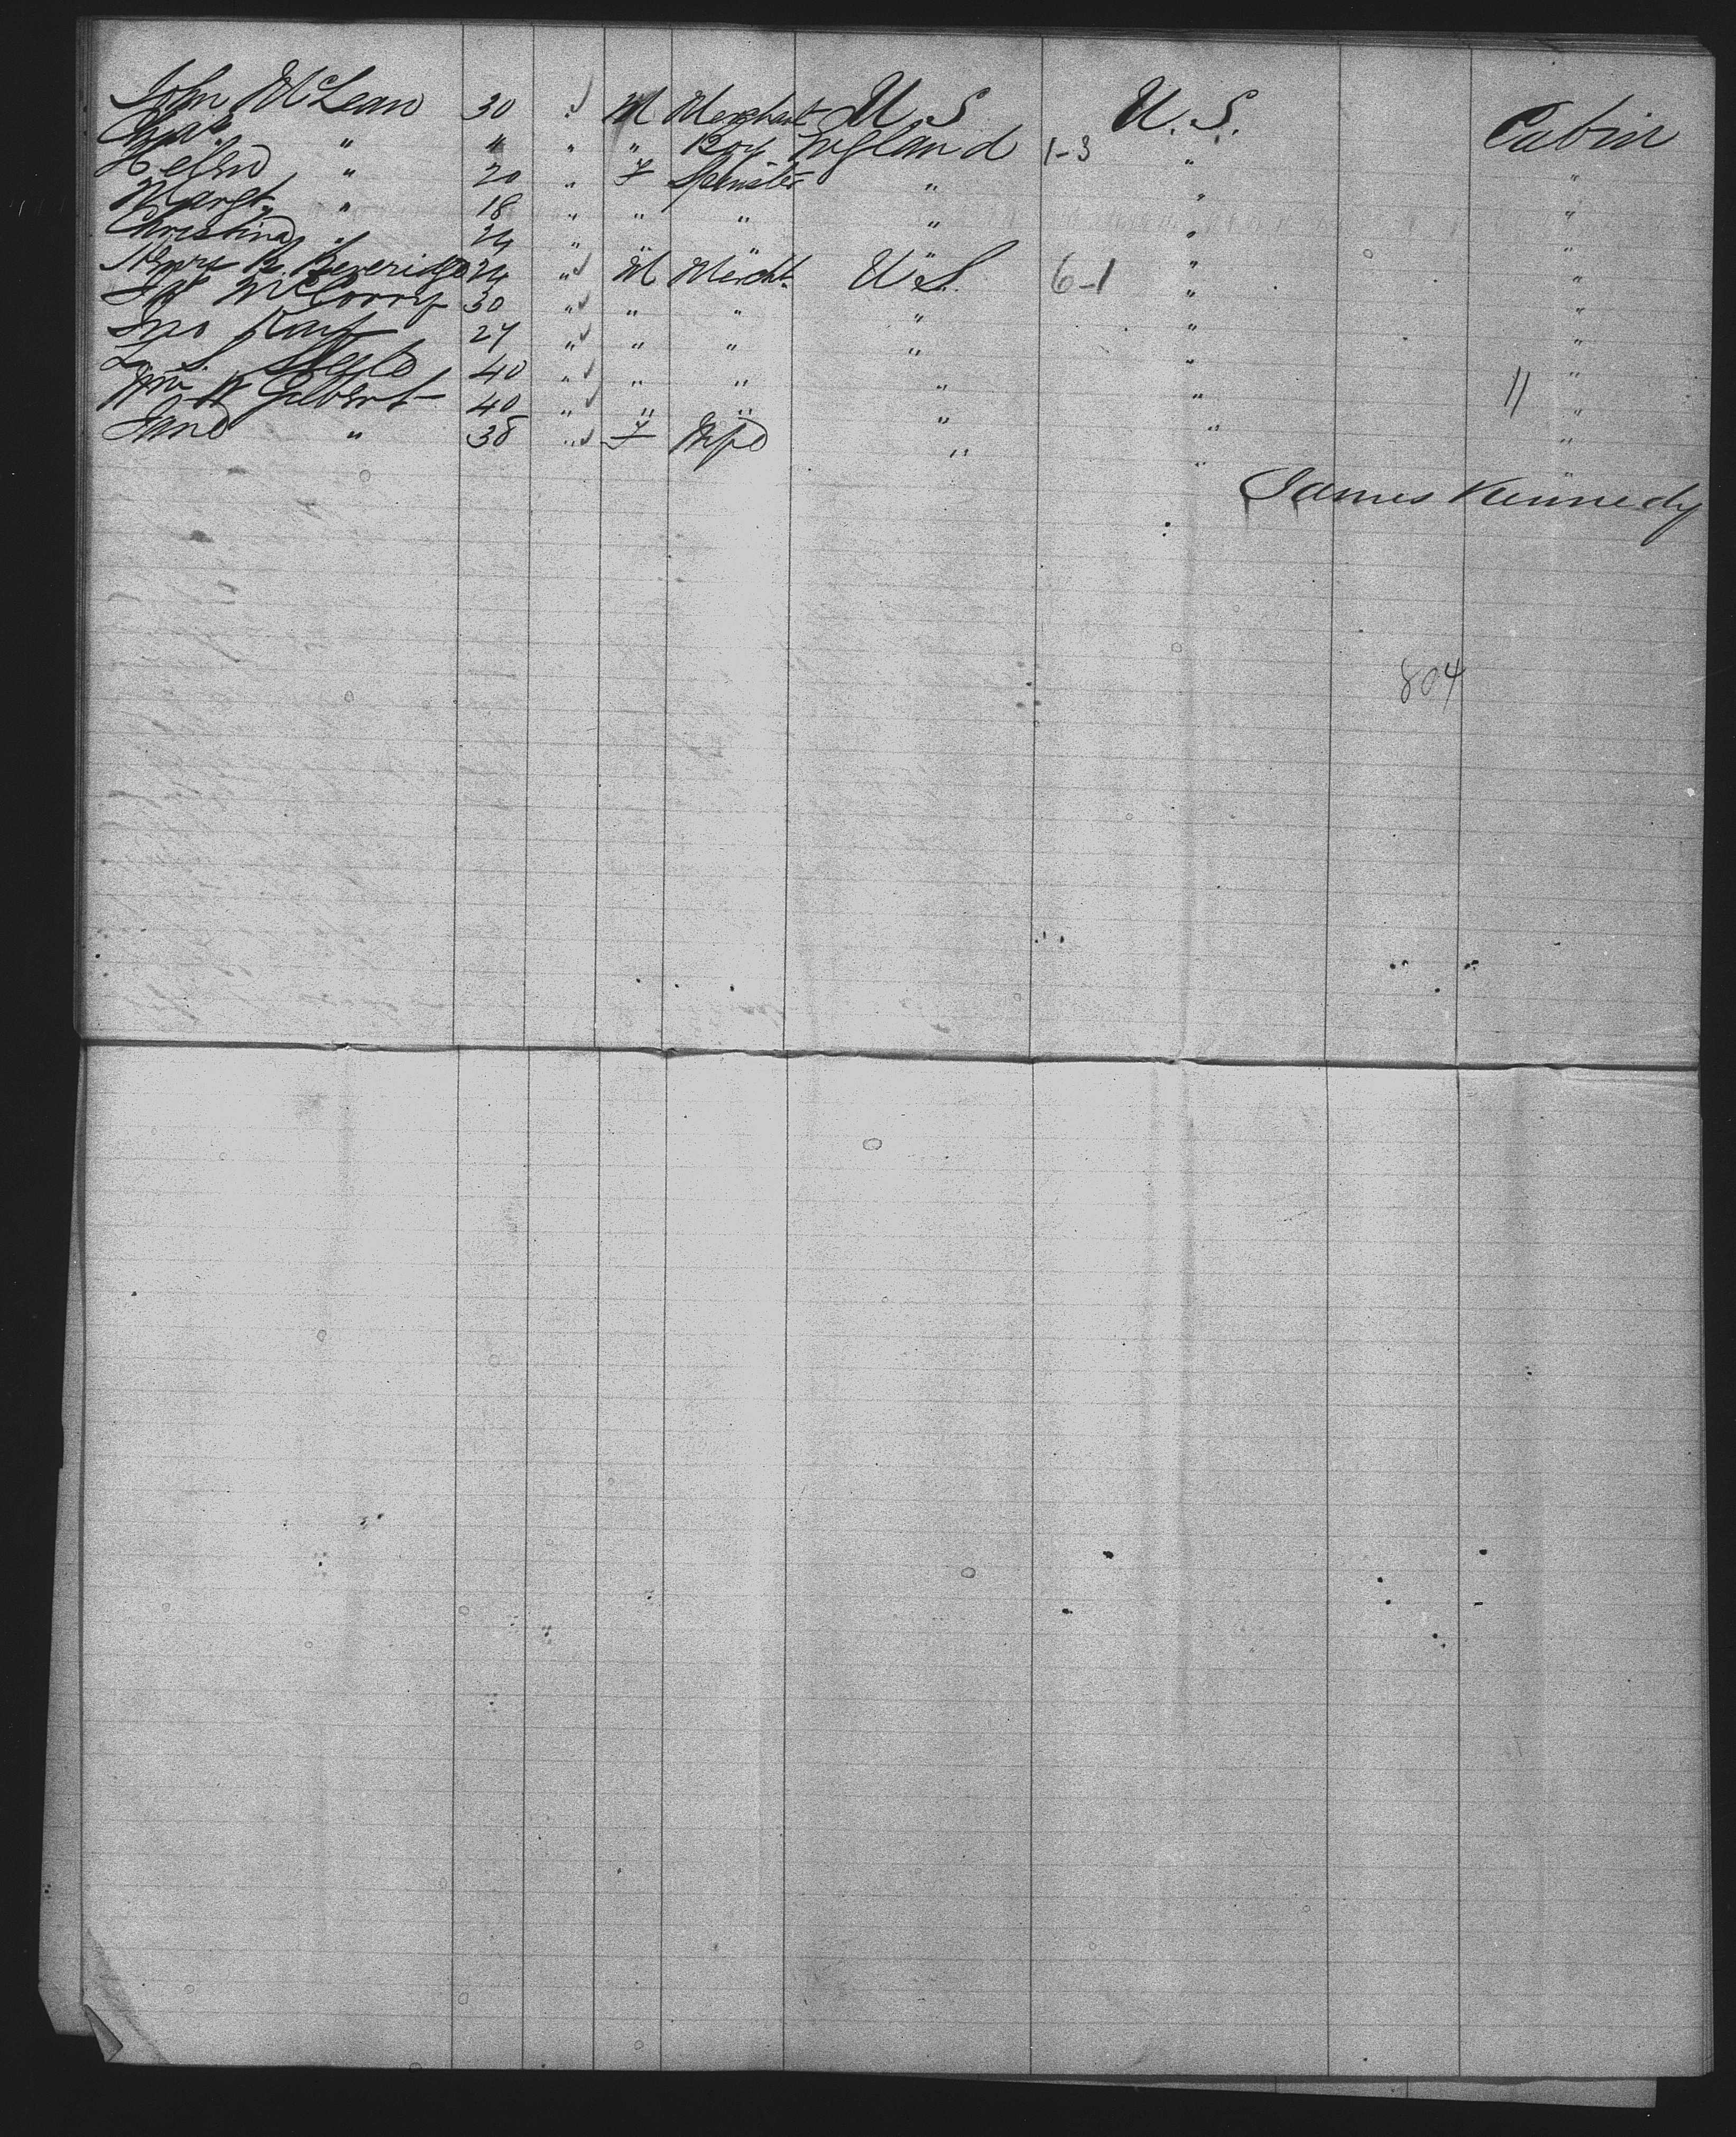 John McLean 30 " ✓ M Merchant U S U. S. Cabin
Chas " " " " Boy England 1-3 " "
Helen " 20 " F Spinster " " "
Margt " 18 " " " " " "
Christina " 24 " " " " " "
Henry B. Beveridge 24 " ✓ M Mercht. U.S. 6-1 " "
McCorry 30 " ✓ " " " " "
Jno 27 " ✓ " " " " "
L. S. 40 " ✓ " " " " "
Wm W Gilbert 40 " ✓ " " " " 11 "
Jane " 38 " ✓ F Wife " "
James Kennedy
804